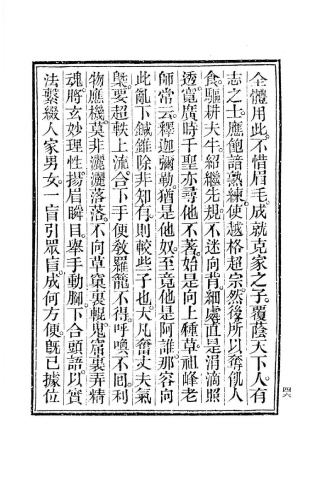 全體用此。不惜眉毛。成就克家之子。覆蔭天下人。有
志之士。應飽諳熟練。使越格超宗。然後所以奪飢人
食。驅耕夫牛。紹繼先規。不迷向背。細處直是涓滴照
透。寬廣時千聖亦尋他不著。始是向上種草。祖峰老
師常云。釋迦彌勒。猶是他奴。至竟他是阿誰。那容向
此亂下鍼錐。除非知有。則較些子也。大凡奮丈夫氣
槩。要超軼上流。合下手便教羅籠不得。呼喚不回。利
物應機。莫非灑灑落落。不向草窠裏輥。鬼窟裏弄精
魂。將玄妙理性。揚眉瞬目。舉手動腳。下合頭語。以實
法繫綴人家男女。一盲引眾盲。成何方便。既已據位
四六